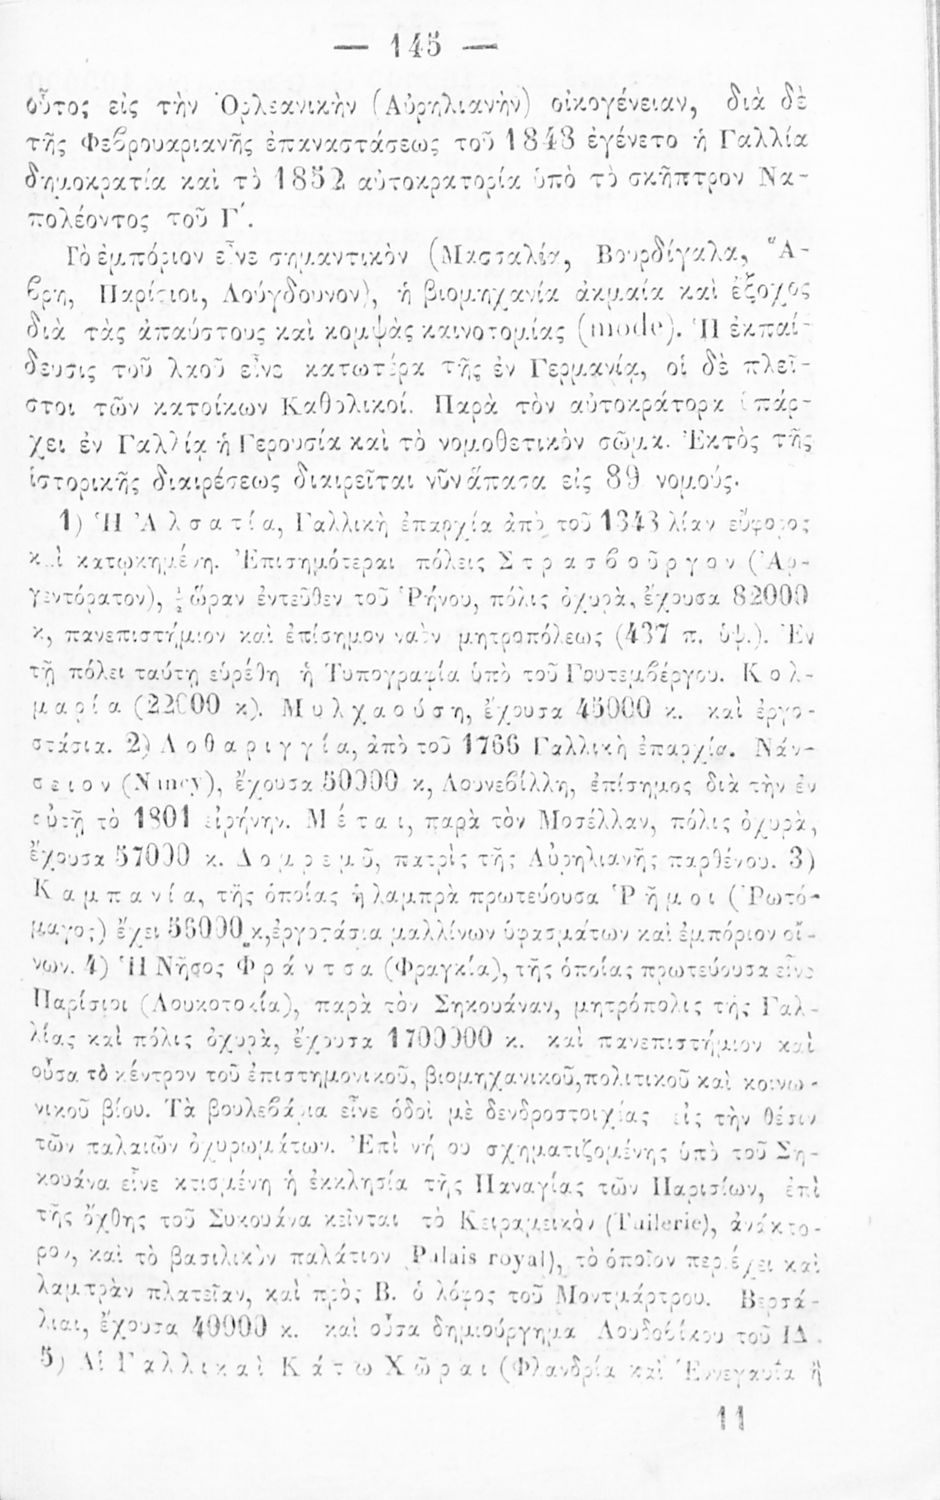 — 145 —
οὗτος εἰς τὴν Ὀρλεανικὴν (Αὐρηλιανὴν) οἰκογένειαν, διὰ δὲ
τῆς Φεβρουαριανῆς ἐπαναστάσεως τοῦ 1848 ἐγένετο ἡ Γαλλία
δημοκρατία καὶ τὸ 1852 αὐτοκρατορία ὑπὸ τὸ σκῆπτρον Να-
πολέοντος τοῦ Γ΄.
Τὸ ἐμπόριον εἶνε σημαντικὸν (Μασσαλία, Βουρδίγαλα, Ἅ-
βρη, Παρίσιοι, Λούγδουνον), ἡ βιομηχανία ἀκμαία καὶ ἔξοχος
διὰ τὰς ἀπαύστους καὶ κομψὰς καινοτομίας (mode). Ἡ ἐκπαί-
δευσις τοῦ λαοῦ εἶνε κατωτέρα τῆς ἐν Γερμανίᾳ, οἱ δὲ πλεῖ-
στοι τῶν κατοίκων Καθολικοί. Παρὰ τὸν αὐτοκράτορα ὑπάρ-
χει ἐν Γαλλίᾳ ἡ Γερουσία καὶ τὸ νομοθετικὸν σῶμα. Ἐκτὸς τῆς
ἱστορικῆς διαιρέσεως διαιρεῖται νῦν ἅπασα εἰς 89 νομούς.
1) Ἡ Ἀλσατία, Γαλλικὴ ἐπαρχία ἀπὸ τοῦ 1648 λίαν εὔφορος
καὶ κατῳκημένη. Ἐπισημότεραι πόλεις Στρασβοῦργον (Ἀρ-
γεντόρατον), ½ ὥραν ἐντεῦθεν τοῦ Ῥήνου, πόλις ὀχυρὰ, ἔχουσα 82000
κ, πανεπιστήμιον καὶ ἐπίσημον ναὸν μητροπόλεως (437 π. ὑψ.). Ἐν
τῇ πόλει ταύτῃ εὑρέθη ἡ Τυπογραφία ὑπὸ τοῦ Γουτεμβέργου. Κολ-
μαρία (22000 κ). Μυλχαούση, ἔχουσα 45000 κ. καὶ ἐργο-
στάσια. 2) Λοθαριγγία, ἀπὸ τοῦ 1766 Γαλλικὴ ἐπαρχία. Νάν-
σειον (Nancy), ἔχουσα 50000 κ, Λουνεβίλλη, ἐπίσημος διὰ τὴν ἐν
αὐτῇ τὸ 1801 εἰρήνην. Μέται, παρὰ τὸν Μοσέλλαν, πόλις ὀχυρὰ,
ἔχουσα 57000 κ. Δομρεμῦ, πατρὶς τῆς Αὐρηλιανῆς παρθένου. 3)
Καμπανία, τῆς ὁποίας ἡ λαμπρὰ πρωτεύουσα Ῥῆμοι (Ῥωτό-
μαγος) ἔχει 56000 κ, ἐργοστάσια μαλλίνων ὑφασμάτων καὶ ἐμπόριον οἴ-
νων. 4) Ἡ Νῆσος Φράντσα (Φραγκία), τῆς ὁποίας πρωτεύουσα εἶνε
Παρίσιοι (Λουκοτοκία), παρὰ τὸν Σηκουάναν, μητρόπολις τῆς Γαλ-
λίας καὶ πόλις ὀχυρὰ, ἔχουσα 1700000 κ. καὶ πανεπιστήμιον καὶ
οὖσα τὸ κέντρον τοῦ ἐπιστημονικοῦ, βιομηχανικοῦ, πολιτικοῦ καὶ κοινω-
νικοῦ βίου. Τὰ βουλεβάρια εἶνε ὁδοὶ μὲ δενδροστοιχίας εἰς τὴν θέσιν
τῶν παλαιῶν ὀχυρωμάτων. Ἐπὶ νήσου σχηματιζομένης ὑπὸ τοῦ Ση-
κουάνα εἶνε κτισμένη ἡ ἐκκλησία τῆς Παναγίας τῶν Παρισίων, ἐπὶ
τῆς ὄχθης τοῦ Συκουάνα κεῖνται τὸ Κειραμεικὸν (Tuilerie), ἀνάκτο-
ρον, καὶ τὸ βασιλικὸν παλάτιον Palais royal), τὸ ὁποῖον περιέχει καὶ
λαμπρὰν πλατεῖαν, καὶ πρὸς Β. ὁ λόφος τοῦ Μοντμάρτρου. Βερσά-
λιαι, ἔχουσα 40000 κ. καὶ οὖσα δημιούργημα Λουδοβίκου τοῦ ΙΔ.
5) Αἱ Γαλλικαὶ Κάτω Χῶραι (Φλανδρία καὶ Ἑννεγαυΐα ἢ
11